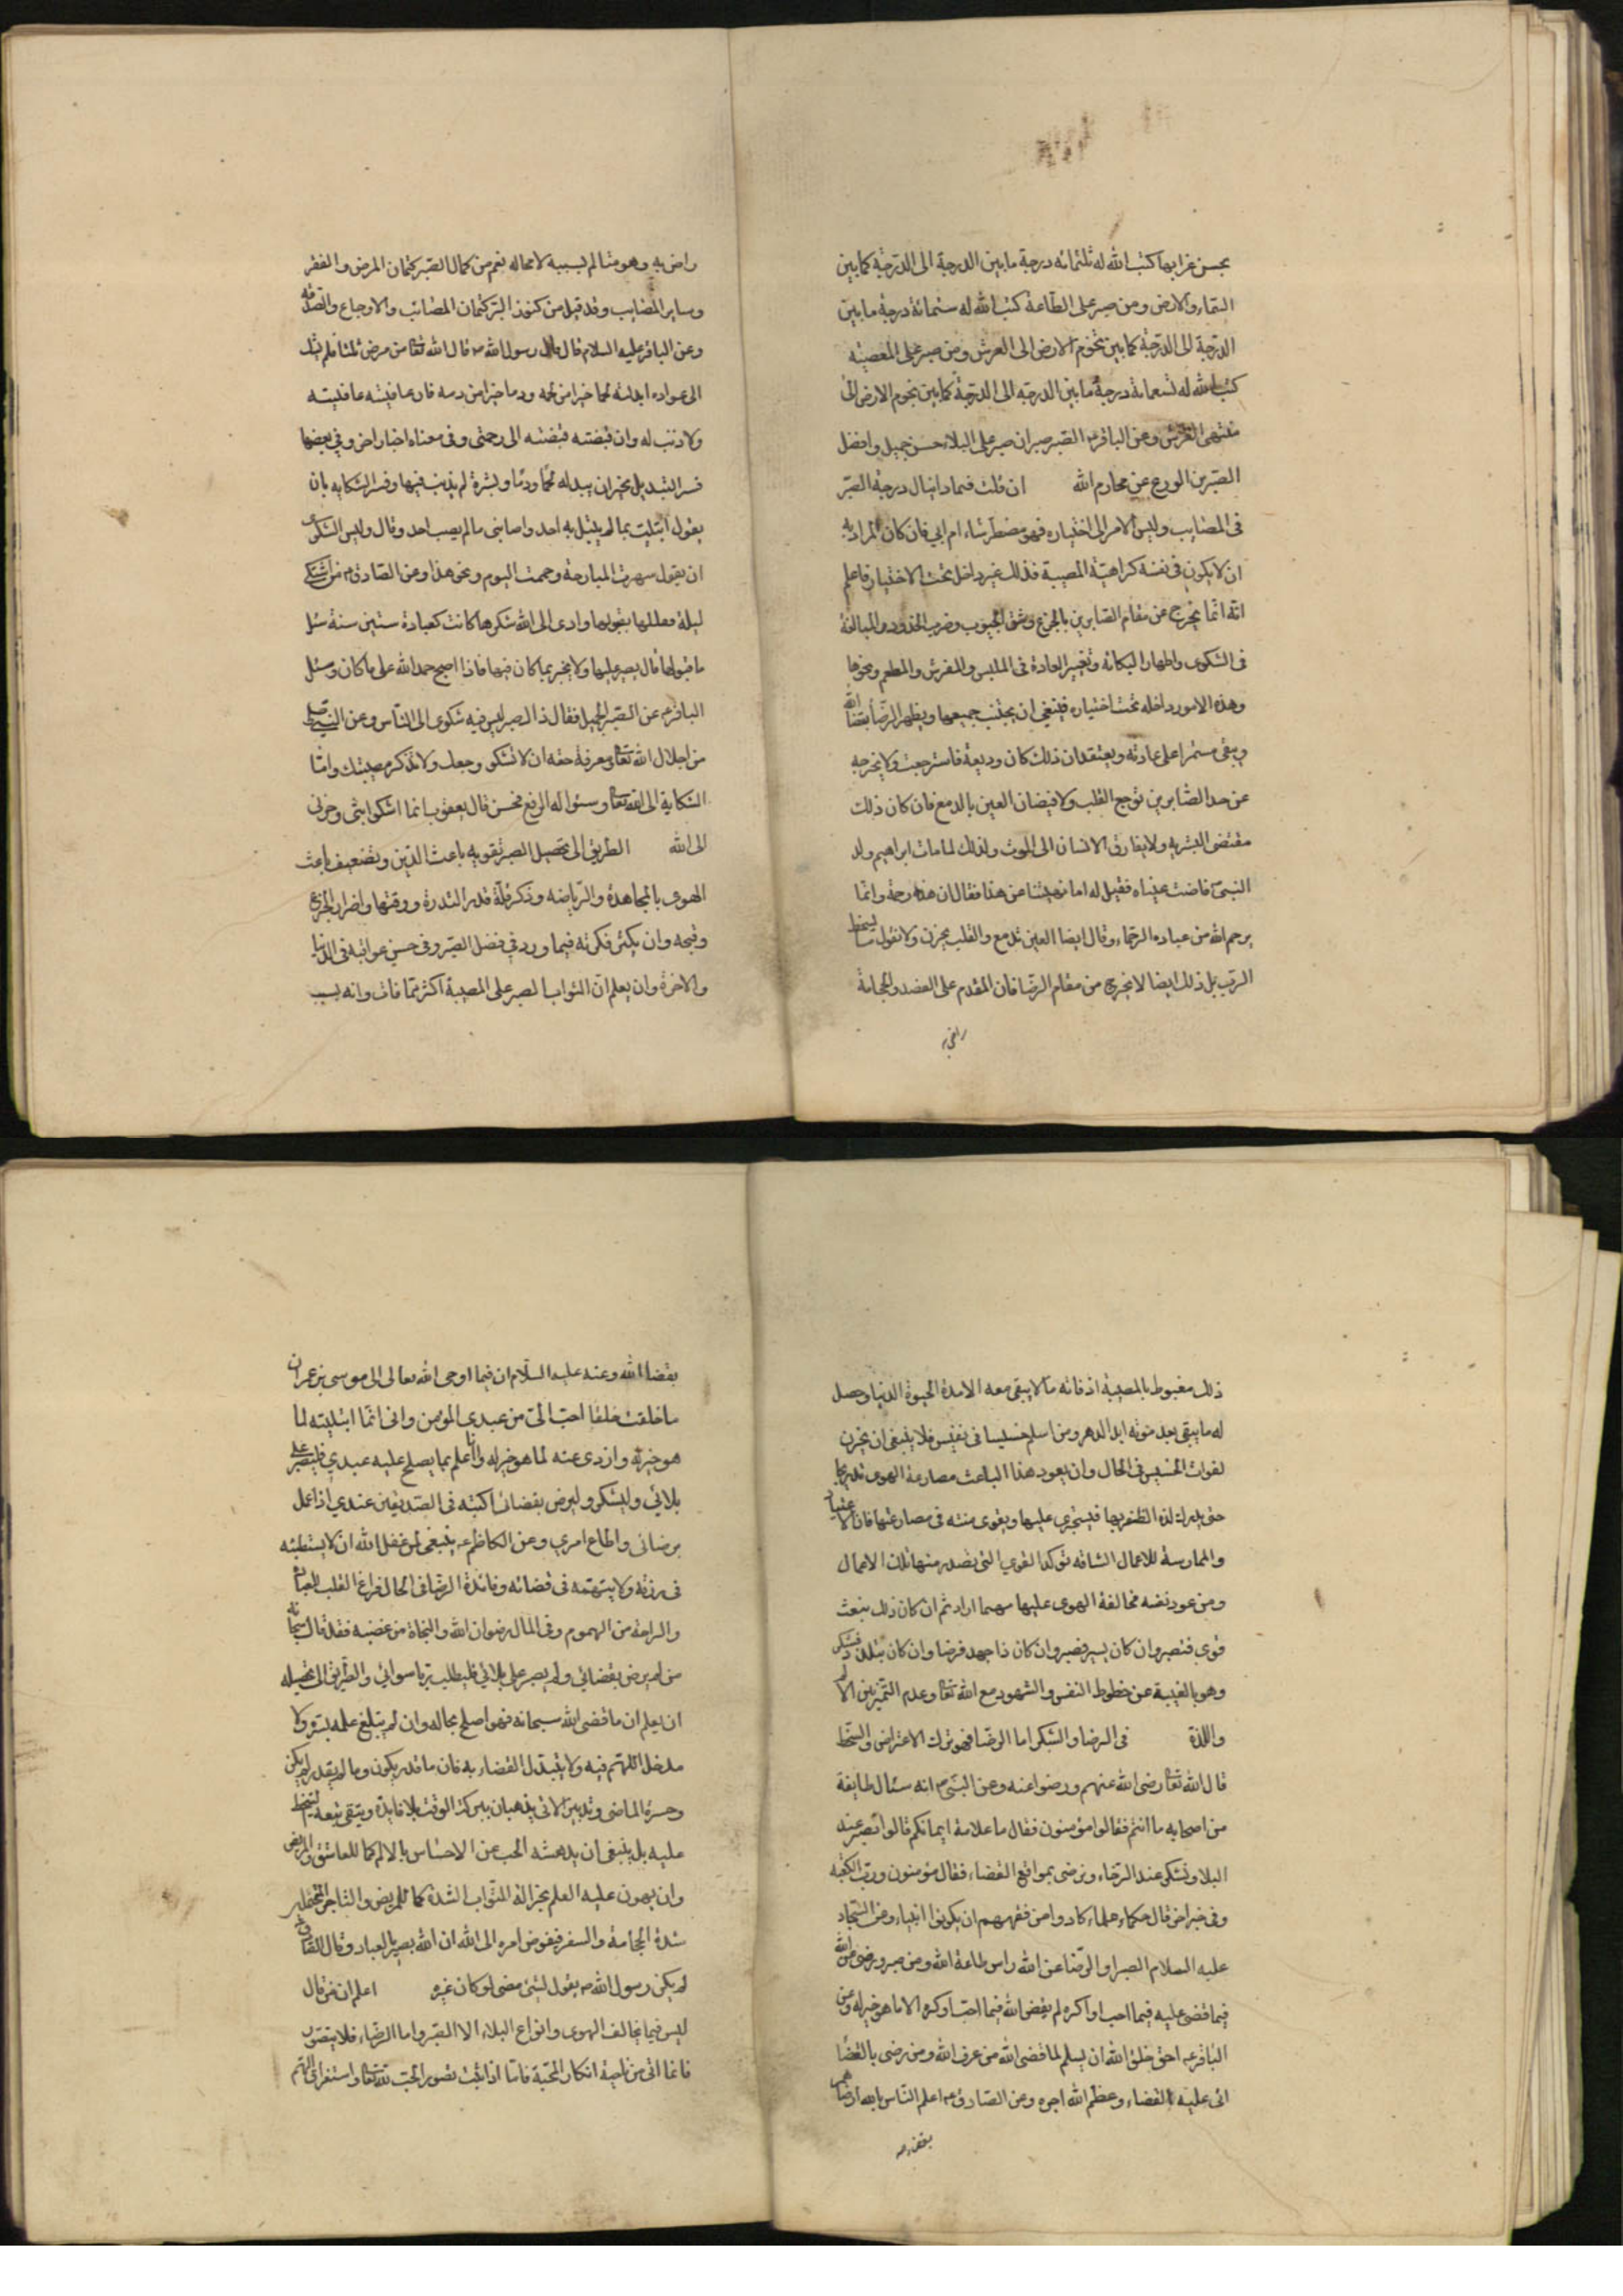 بحسن عزايها كتب الله له ثلثمائه درجة ما بين الدرجة الى الدرجة كما بين
السماء والارض ومن صبر على الطاعة كتب الله له ستمائة درجة ما بين
الدرجة الى الدرجة كما بين تخوم الارض الى العرش ومن صبر على المعصية
كتب الله له تسعمائة درجة ما بين الدرجه الى الدرجة كما بين تخوم الارض الى
منتهى العرش وعن الباقر ع الصبر صبران صبر على البلاء حسن جميل وافضل
الصبرين الورع عن محارم الله ان قلت فبماذا ينال درجة الصبر
فى المصايب وليس الامر الى اختياره فهو مضطر شاء ام ابى فان كان المراد به
ان لا يكون فى نفسه كراهية المصيبة فذلك غير داخل تحت الاختيار فاعلم
انه انما يخرج عن مقام الصابرين بالجزع وشق الجيوب وضرب الخدود والمبالغة
فى الشكوى واظهار الكابة وتغيير العادة فى الملبس والمفرش والمطعم ونحوها
وهذه الامور داخله تحت اختياره فينبغى ان يجتنب جميعها ويظهر الرضا بقضا الله
ويبقى مستمرا على عادته ويعتقد ان ذلك كان وديعة فاسترجعت ولا يخرجه
عن حد الصابرين توجع القلب ولا فيضان العين بالدمع فان كان ذلك
مقتضى البشريه ولا يفارق الانسان الى الموت ولذلك لما مات ابراهيم ولد
النبى ص فاضت عيناه فقيل له اما نهيتنا عن هذا فقال ان هذه رحمة وانما
يرحم الله من عباده الرحماء وقال ايضا العين تدمع والقلب يحزن ولا نقول ما يسخط
الرب بل ذلك ايضا لا يخرج من مقام الرضا فان المقدم على الفصد والحجامة
راض به
راض به وهو متالم بسببه لا محاله نعم من كمال الصبر كتمان المرض والفقر
وساير المصايب وقد قيل من كنوز البر كتمان المصائب والاوجاع والصدقه
وعن الباقر عليه السلام قال قال رسول الله ص قال الله تعالى من مرض ثلثا فلم يشك
الى عواده ابدلته لحما خيرا من لحمه ودما خيرا من دمه فان عافيته عافيته
ولا ذنب له وان قبضته قبضته الى رحمتى وفى معناه اخبار اخر وفى بعضها
فسر التبديل بخير ان يبدله لحما ودما وبشرة لم يذنب فيها وفسر الشكايه بان
يقول ابتليت بما لم يبتل به احد واصابنى ما لم يصب احد وقال وليس الشكوى
ان يقول سهرت البارحة وحممت اليوم ونحو هذا وعن الصادق ع من اشتكى
ليلة فقبلها بقبولها وادى الى الله شكرها كانت كعبادة ستين سنة سئل
ما قبولها قال يصبر عليها ولا يخبر بما كان فيها فاذا اصبح حمد الله على ما كان وسئل
الباقر ع عن الصبر الجميل فقال ذاك صبر ليس فيه شكوى الى الناس وعن النبى ص
من اجلال الله تعالى ومعرفة حقه ان لا تشكو وجعك ولا تذكر مصيبتك واما
الشكاية الى الله تعالى وسئواله الرفع فحسن قال يعقوب انما اشكوا بثى وحزنى
الى الله الطريق الى تحصيل الصبر تقويه باعث الدين وتضعيف باعث
الهوى بالمجاهدة والرياضه وذكر قلة قدر الشدة ووقتها واضرار الجزع
وقبحه وان يكثر فكرته فيما ورد فى فضل الصبر وفى حسن عواقبه فى الدنيا
والاخرة وان يعلم ان الثواب لصبر على المصيبة اكثر مما فات وانه بسبب
ذلك مغبوط بالمصيبة اذ فاته ما لا يبقى معه الا مدة الحيوة الدنيا وحصل
له ما يبقى بعد موته ابد الدهر ومن اسلم خسيسا فى نفيس فلا ينبغى ان يحزن
لفوات الخسيس فى الحال وان يعود هذا الباعث مصارعة الهوى تدريجا
حتى يدرك لذة الظفر بها فيستجرى عليها ويقوى منته فى مصارعتها فان الاعتياد
والممارسة للاعمال الشاقه توكد القوى التى تصدر منها تلك الاعمال
ومن عود نفسه مخالفة الهوى عليها مهما اراد ثم ان كان ذلك بتعب
قوى فتصبر وان كان بيسير فصبر وان كان ذا جهد فرضا وان كان بتلذذ فشكر
وهو بالغيبة عن حظوظ النفس والشهود مع الله تعالى وعدم التمييز بين الالم
واللذة فى الرضا والشكر اما الرضا فهو ترك الاعتراض والسخط
قال الله تعالى رضى الله عنهم ورضوا عنه وعن النبى ص انه سئال طايفة
من اصحابه ما انتم فقالوا مؤمنون فقال ما علامة ايمانكم قالوا نصبر عند
البلاء ونشكر عند الرخاء ونرضى بمواقع القضاء فقال مؤمنون ورب الكعبه
وفى خبر اخر قال حكماء علماء كادوا من فقههم ان يكونوا انبياء وعن السجاد
عليه السلام الصبر والرضا عن الله راس طاعة الله ومن صبر ورضى عن الله
فيما قضى عليه فيما احب او اكره لم يقض الله فيما احب او كره الا ما هو خير له وعن
الباقر ع احق خلق الله ان يسلم لما قضى الله من عرف الله ومن رضى بالقضا
اتى عليه القضاء وعظم الله اجره وعن الصادق ع اعلم الناس بالله ارضاهم
بقضاء
بقضا الله وعنه عليه السلام ان فيما اوحى الله تعالى الى موسى بن عمران
ما خلقت خلقا احب الى من عبدى المؤمن وانى انما ابتليته لما
هو خير له وازوى عنه لما هو خير له وانا اعلم بما يصلح عليه عبدي فليصبر على
بلائي وليشكر وليرض بقضائى اكتبه فى الصديقين عندي اذا عمل
برضائى واطاع امري وعن الكاظم ع ينبغى لمن غفل الله ان لا يستبطئه
فى رزقه ولا يتهمه فى قضائه وفائدة الرضا فى الحال فراغ القلب للعبادة
والراحة من الهموم وفى المال رضوان الله والنجاة من غضبه فقد قال سبحانه
من لم يرض بقضائي ولم يصبر على بلائي فليطلب ربا سوائي والطريق الى تحصيله
ان يعلم ان ما قضى الله سبحانه فهو اصلح بحاله وان لم يبلغ علمه بسره ولا
مدخل للهم فيه ولا يتبدل القضاء به فان ما قدر يكون وما لم يقدر لم يكن
وحسرة الماضى وتدبير الاتى يذهبان ببركة الوقت بلا فايدة ويبقى تبعة السخط
عليه بل ينبغى ان يدهشه الحب عن الاحساس بالالم كما للعاشق والحريص
وان يهون عليه العلم بجزالة الثواب الشدة كما للمريض والتاجر المتحملين
شدة الحجامة والسفر فيفوض امره الى الله ان الله بصير بالعباد وقال الصادق ع
لم يكن رسول الله ص يقول لشئ مضى لو كان غيره اعلم ان من قال
ليس فيما يخالف الهوى وانواع البلاء الا الصبر واما الرضاء فلا يتصور
فانما اتى من ناحية انكار المحبة فاما اذا ثبت تصور الحب لله تعالى واستغراق الهم